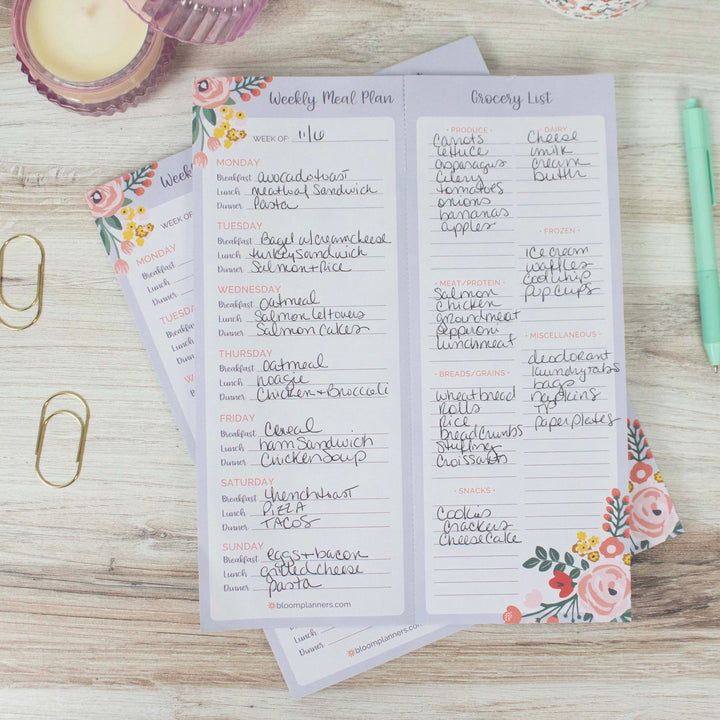 Weekly Meal Plan
WEEK OF 11/6
MONDAY
Breakfast avocado toast
Lunch meatloaf sandwich
Dinner Pasta
TUESDAY
Breakfast Bagel w/creamcheese
Lunch turkey sandwich
Dinner Salmon + Rice
WEDNESDAY
Breakfast oatmeal
Lunch Salmon leftovers
Dinner Salmon cakes
THURSDAY
Breakfast oatmeal
Lunch hoagie
Dinner Chicken + Broccoli
FRIDAY
Breakfast Cereal
Lunch ham Sandwich
Dinner Chicken Soup
SATURDAY
Breakfast french toast
Lunch PIZZA
Dinner TACOS
SUNDAY
Breakfast eggs + bacon
Lunch grilled cheese
Dinner pasta
bloomplanners.com
Grocery List
• PRODUCE •
Carrots
lettuce
asparagus
celery
tomatoes
onions
bananas
apples
• MEAT/PROTEIN •
Salmon
Chicken
groundmeat
pepperoni
lunchmeat
• BREADS/GRAINS •
wheat bread
Rolls
Rice
breadcrumbs
stuffing
Croissants
• SNACKS •
Cookies
Crackers
Cheesecake
• DAIRY •
Cheese
milk
cream
butter
• FROZEN •
ice cream
waffles
cool whip
pup cups
• MISCELLANEOUS •
deodorant
laundry tabs
bags
napkins
TP
paper plates
Weekly
WEEK OF
MONDAY
Breakfast
Lunch
Dinner
TUESD
Breakfast
Lunch
Dinner
Lunch
Dinner
bloomplanners.com